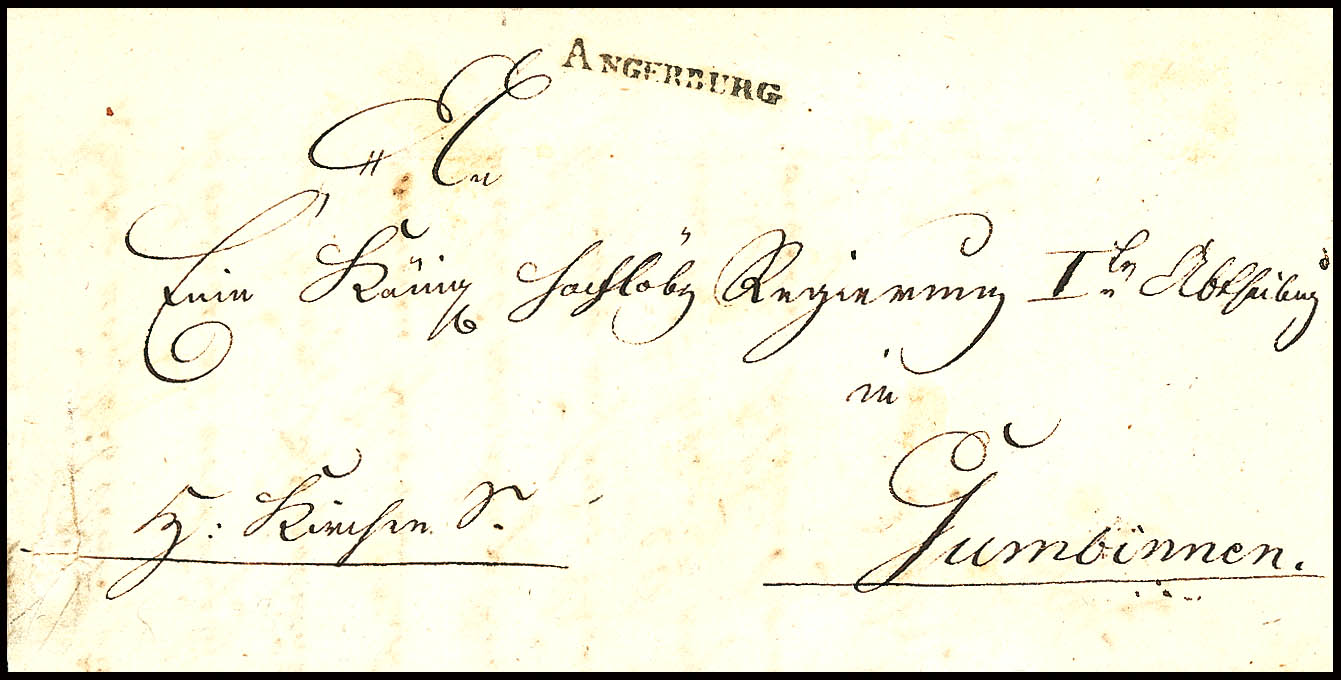 ANGERBURG
An
Eine Königl hochlöbl Regierung Ite Abtheilung
in
H: Kirchen S.
Gumbinnen.